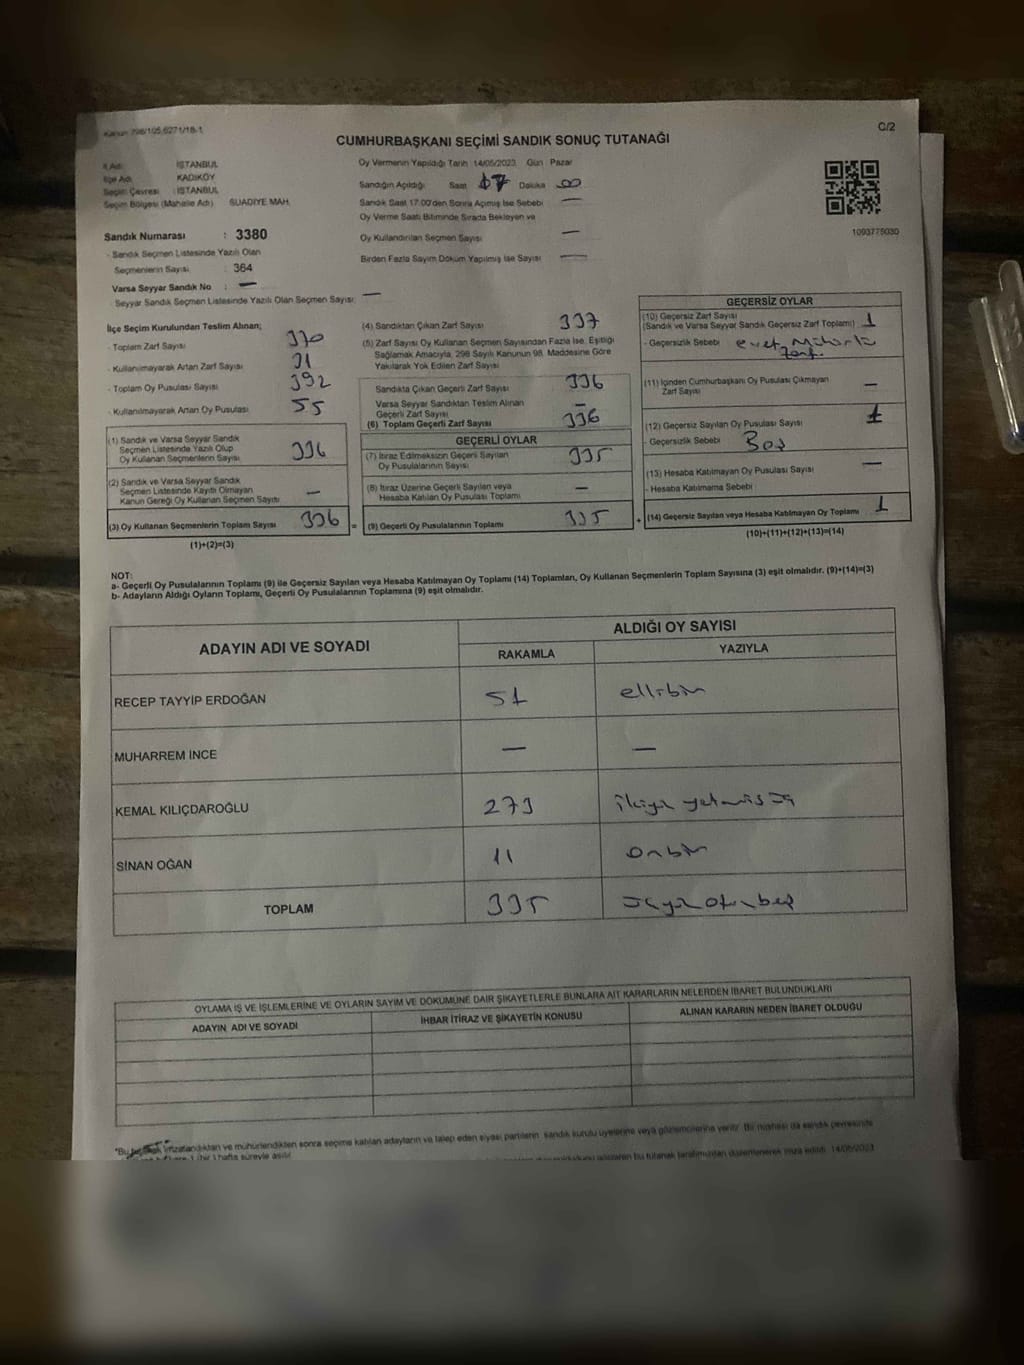 Kanun 298/105,6271/18-1
C/2
CUMHURBAŞKANI SEÇİMİ SANDIK SONUÇ TUTANAĞI
İl Adı : İSTANBUL
İlçe Adı : KADIKÖY
Seçim Çevresi : İSTANBUL
Seçim Bölgesi (Mahalle Adı) SUADİYE MAH.
Sandık Numarası : 3380
- Sandık Seçmen Listesinde Yazılı Olan
Seçmenlerin Sayısı : 364
Varsa Seyyar Sandık No : —
Seyyar Sandık Seçmen Listesinde Yazılı Olan Seçmen Sayısı: —
Oy Vermenin Yapıldığı Tarih :14/05/2023 Gün : Pazar
Sandığın Açıldığı Saat 17 Dakika 00
Sandık Saat 17:00'den Sonra Açılmış İse Sebebi —
Oy Verme Saati Bitiminde Sırada Bekleyen ve
Oy Kullandırılan Seçmen Sayısı —
Birden Fazla Sayım Döküm Yapılmış İse Sayısı —
1093775030
İlçe Seçim Kurulundan Teslim Alınan;
- Toplam Zarf Sayısı 370
- Kullanılmayarak Artan Zarf Sayısı 31
- Toplam Oy Pusulası Sayısı 392
- Kullanılmayarak Artan Oy Pusulası 55
(1) Sandık ve Varsa Seyyar Sandık
Seçmen Listesinde Yazılı Olup
Oy Kullanan Seçmenlerin Sayısı 336
(2) Sandık ve Varsa Seyyar Sandık
Seçmen Listesinde Kayıtlı Olmayan
Kanun Gereği Oy Kullanan Seçmen Sayısı —
(3) Oy Kullanan Seçmenlerin Toplam Sayısı 336 =
(1)+(2)=(3)
(4) Sandıktan Çıkan Zarf Sayısı 337
(5) Zarf Sayısı Oy Kullanan Seçmen Sayısından Fazla İse, Eşitliği
Sağlamak Amacıyla, 298 Sayılı Kanunun 98. Maddesine Göre
Yakılarak Yok Edilen Zarf Sayısı
Sandıkta Çıkan Geçerli Zarf Sayısı 336
Varsa Seyyar Sandıktan Teslim Alınan
Geçerli Zarf Sayısı —
(6) Toplam Geçerli Zarf Sayısı 336
GEÇERLİ OYLAR
(7) İtiraz Edilmeksizin Geçerli Sayılan
Oy Pusulalarının Sayısı 335
(8) İtiraz Üzerine Geçerli Sayılan veya
Hesaba Katılan Oy Pusulası Toplamı —
(9) Geçerli Oy Pusulalarının Toplamı 335 +
GEÇERSİZ OYLAR
(10) Geçersiz Zarf Sayısı
(Sandık ve Varsa Seyyar Sandık Geçersiz Zarf Toplamı) 1
- Geçersizlik Sebebi evet mühürlü
zarf.
(11) İçinden Cumhurbaşkanı Oy Pusulası Çıkmayan
Zarf Sayısı —
(12) Geçersiz Sayılan Oy Pusulası Sayısı 1
- Geçersizlik Sebebi Boş
(13) Hesaba Katılmayan Oy Pusulası Sayısı —
- Hesaba Katılmama Sebebi
(14) Geçersiz Sayılan veya Hesaba Katılmayan Oy Toplamı 1
(10)+(11)+(12)+(13)=(14)
NOT:
a- Geçerli Oy Pusulalarının Toplamı (9) ile Geçersiz Sayılan veya Hesaba Katılmayan Oy Toplamı (14) Toplamları, Oy Kullanan Seçmenlerin Toplam Sayısına (3) eşit olmalıdır. (9)+(14)=(3)
b- Adayların Aldığı Oyların Toplamı, Geçerli Oy Pusulalarının Toplamına (9) eşit olmalıdır.
ADAYIN ADI VE SOYADI
ALDIĞI OY SAYISI
RAKAMLA YAZIYLA
RECEP TAYYİP ERDOĞAN 51 ellibir
MUHARREM İNCE — —
KEMAL KILIÇDAROĞLU 273 ikiyüz yetmiş üç
SİNAN OĞAN 11 onbir
TOPLAM 335 üçyüz otuzbeş
OYLAMA İŞ VE İŞLEMLERİNE VE OYLARIN SAYIM VE DÖKÜMÜNE DAİR ŞİKAYETLERLE BUNLARA AİT KARARLARIN NELERDEN İBARET BULUNDUKLARI
ADAYIN ADI VE SOYADI İHBAR İTİRAZ VE ŞİKAYETİN KONUSU ALINAN KARARIN NEDEN İBARET OLDUĞU
*Bu imzalandıktan ve mühürlendikten sonra seçime katılan adayların ve talep eden siyasi partilerin sandık kurulu üyelerine veya gözlemcilerine verilir. Bir nüshası da sandık çevresinde
(bir) hafta süreyle asılır. bu tutanak tarafımızdan düzenlenerek imza edildi. 14/05/2023